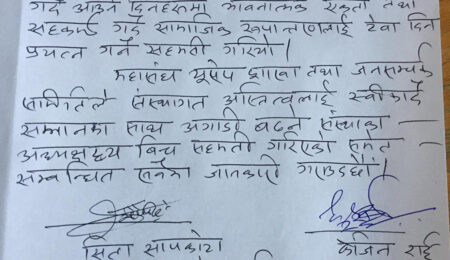 गर्दै आउने दिनहरूमा भावनात्मक एकता तथा
सहकार्य गर्दै सामाजिक रूपान्तरणलाई टेवा दिने
प्रयत्न गर्ने सहमती गरियो।
महासंघ युरोप शाखा तथा जनसम्पर्क
समितिले संस्थागत अस्तित्वलाई स्वीकार्दै
सम्मानका साथ अगाडी बढ्ने संस्थाका
अध्यक्षद्वय बिच सहमती गरिएको समेत
सम्बन्धित सबैमा जानकारी गराउँदछौं।
सिता सापकोटा कुजित राई